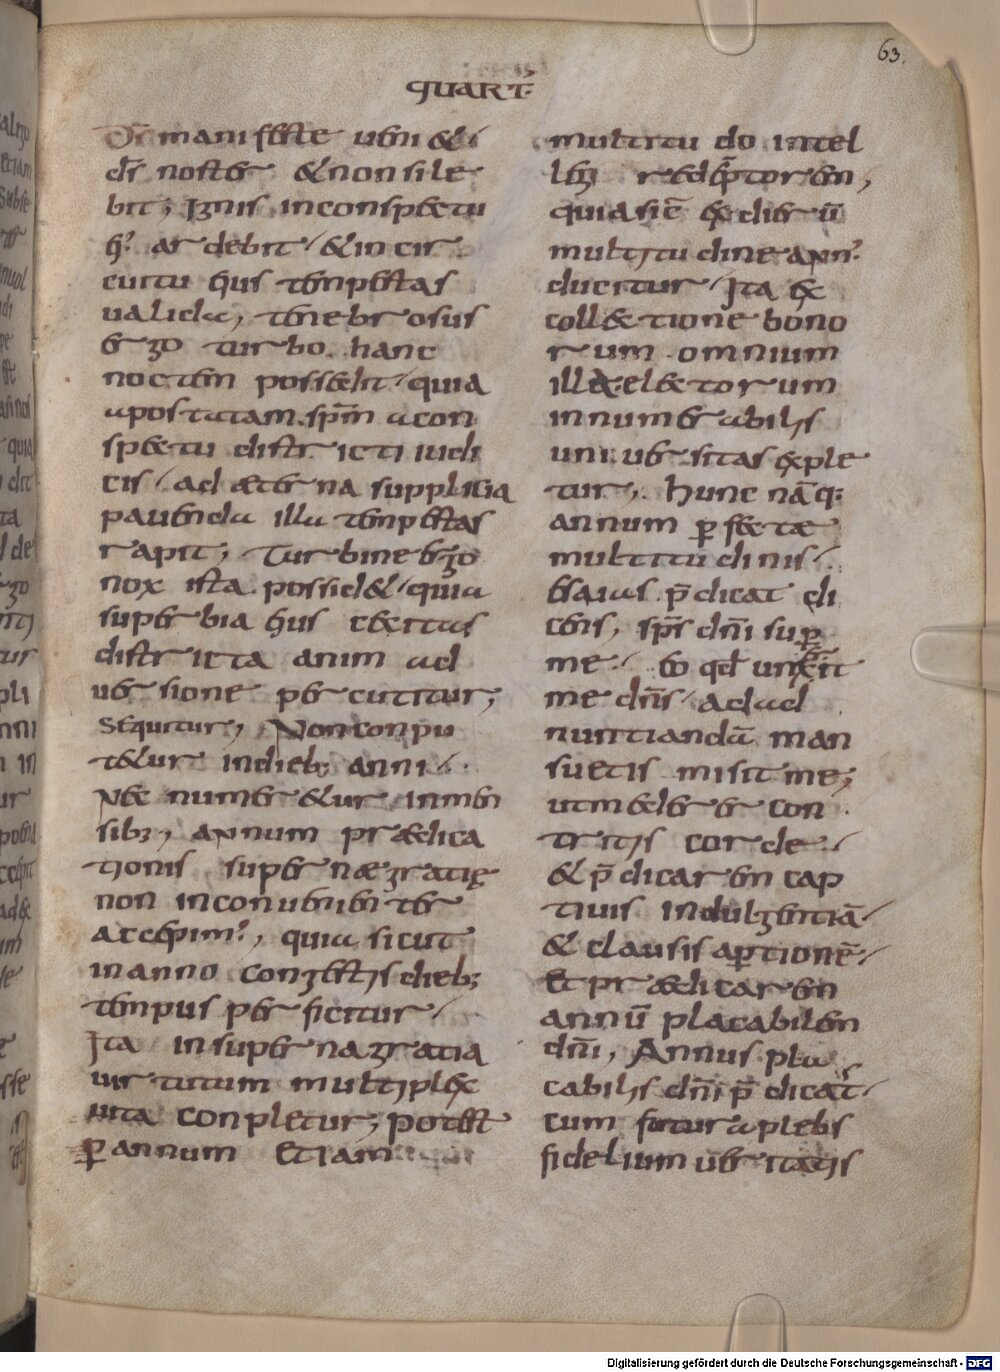 63.
QUART.
Ds manifeste veni&
ds noster & non sile
bit; Ignis inconspectu
ei' ardebit / & in cir
cuitu eius tempestas
ualida, tenebrosus
ergo turbo hanc
noctem possedit / quia
apostatam spm acon
spectu districti iudi
cis / ad aeterna supplicia
pauenda illa tempestas
rapit; Turbine ergo
nox ista possid& / quia
superbia eius cecitas
districta anim ad
uersione percutitur;
Sequitur, Non conpu
t&ur in dieb; anni /.
Nec numer&ur in men
sib;, annum praedica
tionis supernae gratię
non inconuenienter
accepim', quia sicut
in anno congestis dieb;
tempus perficitur /
Ita in superna gratia
uirtutum multiplex
uita conpletur; potest
p annum etiam
multitudo intel
legi redeptorem,
quia sic ex dierū
multitudine ann'
ducitur / Ita ex
coll&tione bono
rum omnium
illa electorum
innumerabilis
uniuersitas exple
tur, hunc nāq;
annum pfectae
multitudinis /
esaias pdicat di
cens, sps dni sup
me / eo qd unxerit
me dns / Ad ad
nuntiandū man
suetis misit me;
ut mederer con
tritis corde /
& pdicarem cap
tiuis indulgentiā /
& clausis aptionē /
Et praedicarem
annū placabilem
dni, Annus pla
cabilis dni pdicat /
cum futura plebs
fidelium ueritatis
Digitalisierung gefördert durch die Deutsche Forschungsgemeinschaft - DFG